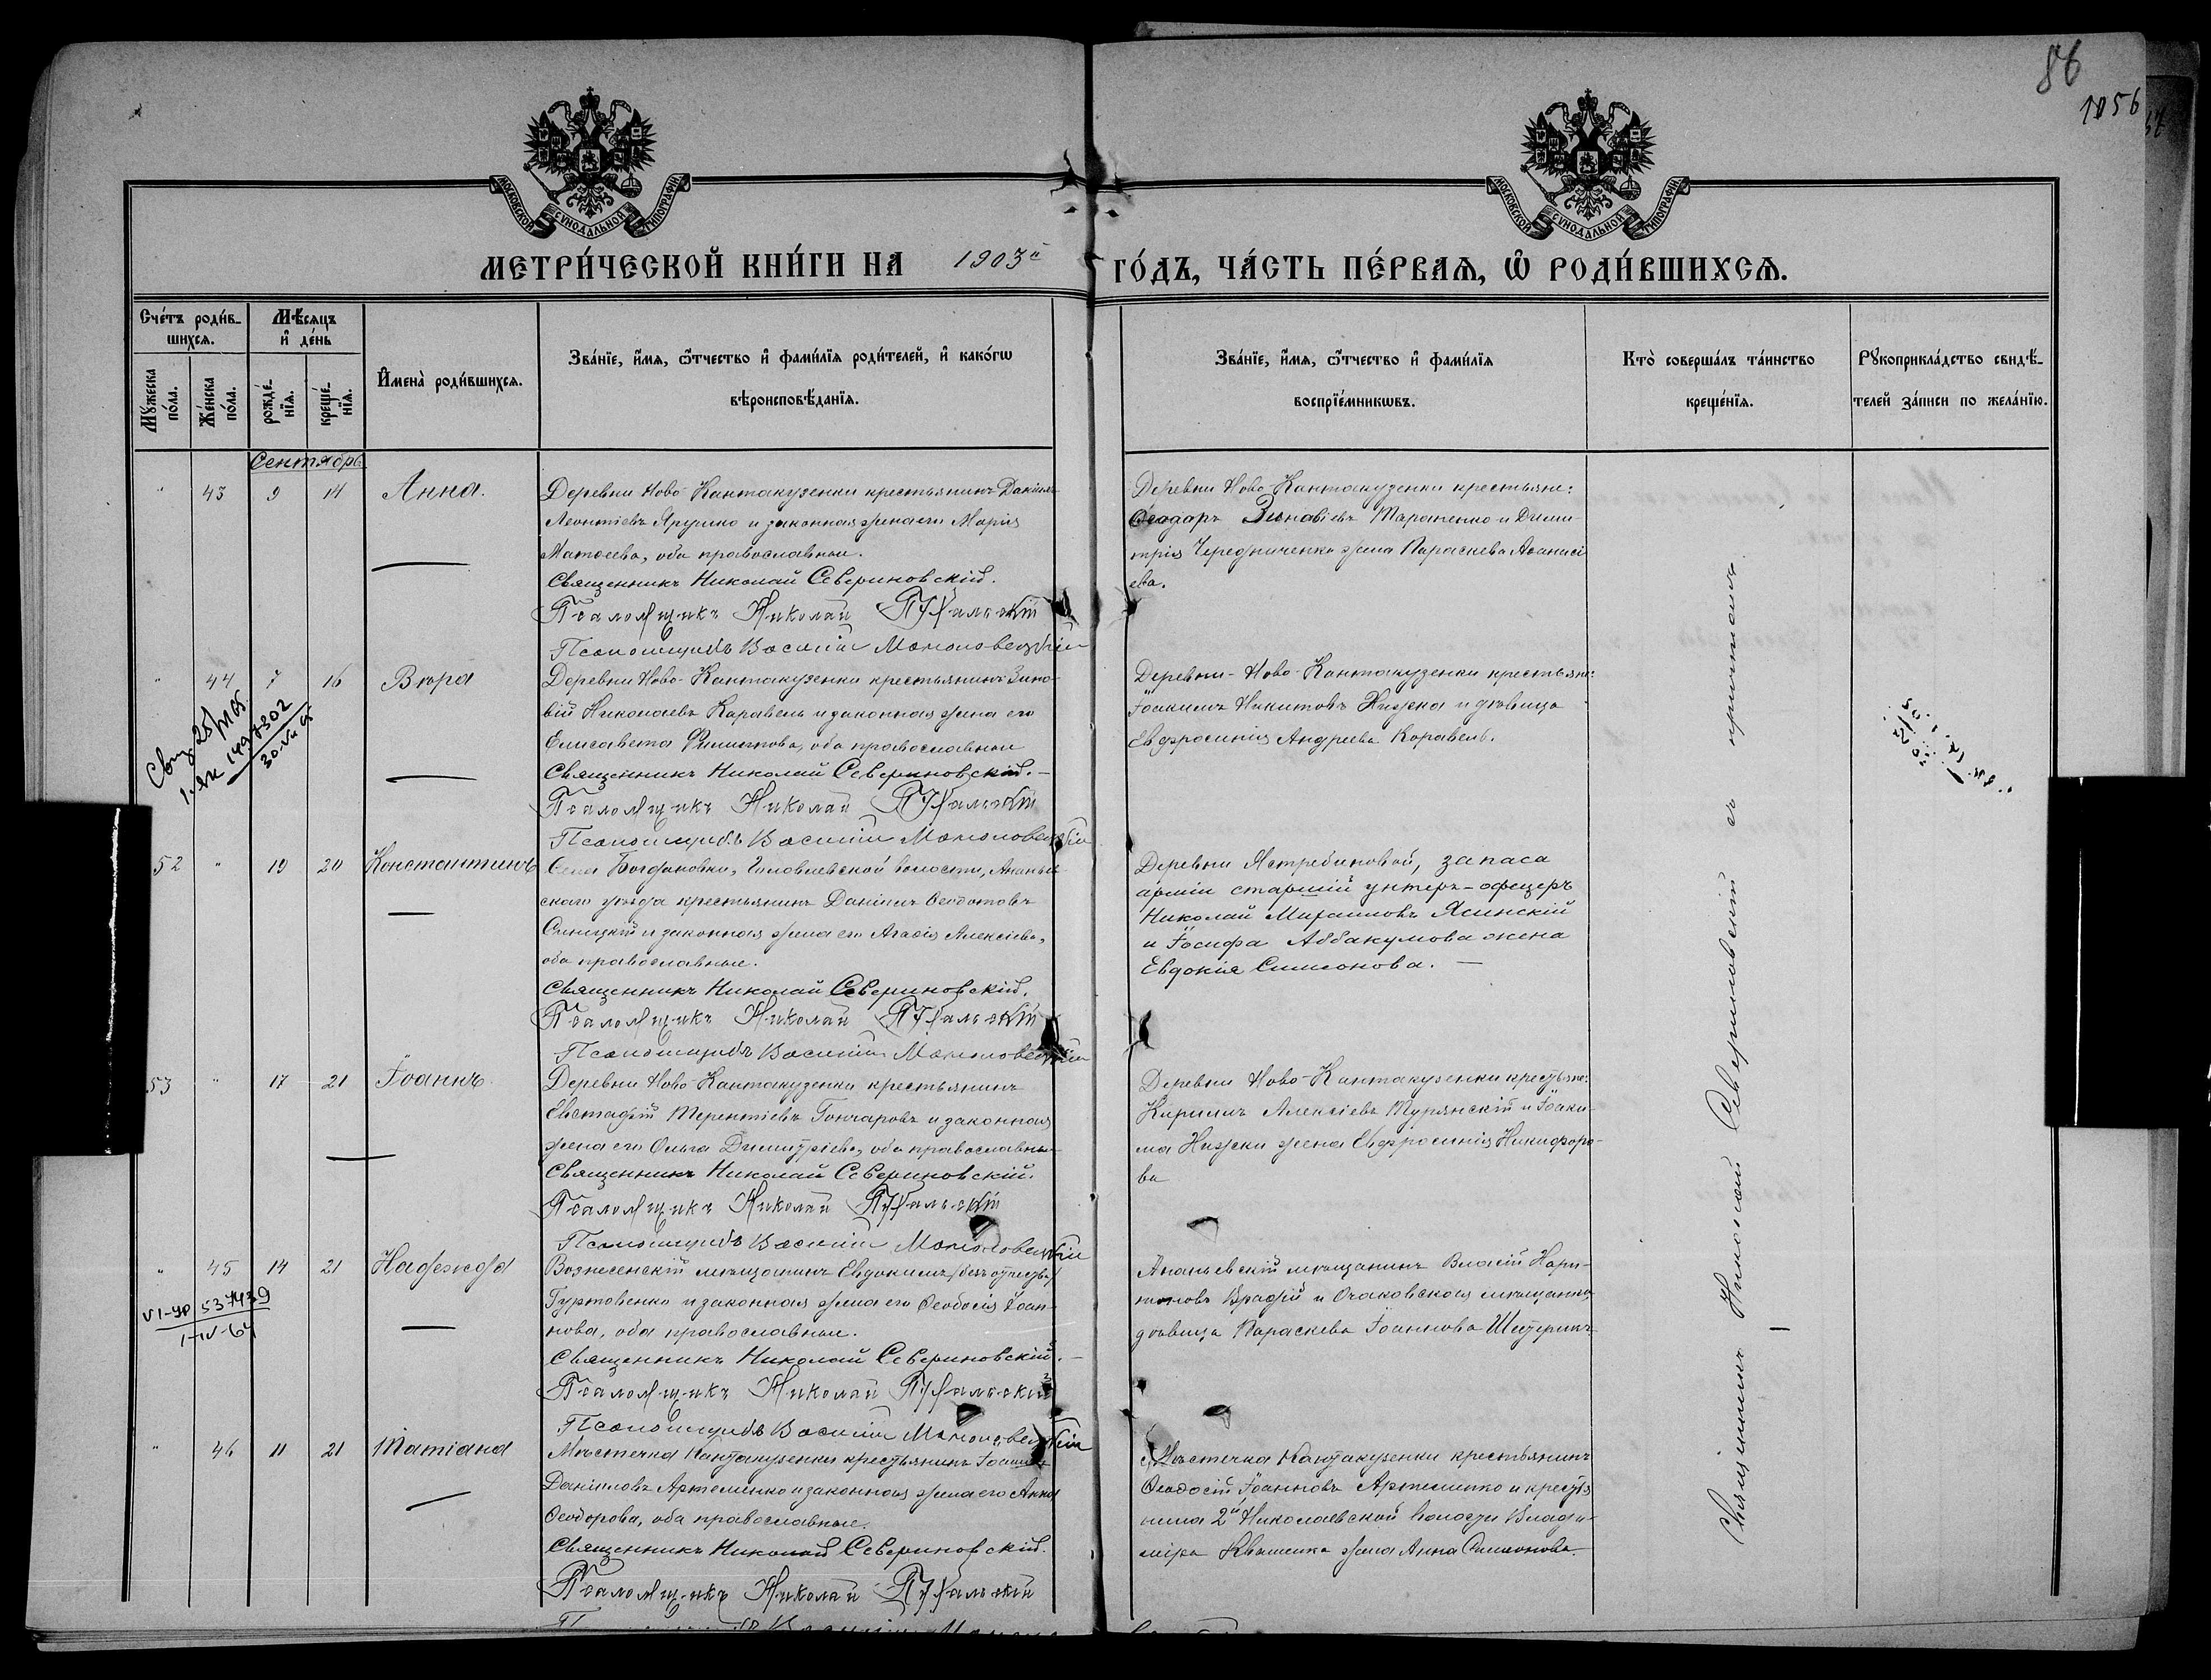 86
1056
МОСКОВСКОЙ СѴНОДАЛЬНОЙ ТИПОГРАФІИ
МОСКОВСКОЙ СѴНОДАЛЬНОЙ ТИПОГРАФІИ
МЕТРИ́ЧЕСКОЙ КНИ́ГИ НА 1903й ГО́ДЪ, ЧА́СТЬ ПЕ́РВАЯ, Ѽ РОДИ́ВШИХСЯ.
Сче́тъ роди́в-
шихся.
Мѣ́сяцъ
и҆ де́нь
Мꙋ́жеска
по́ла.
Же́нска
по́ла.
рожде́-
нїя.
креще́-
нїя.
И҆мена̀ роди́вшихся.
Зва́нїе, и҆́мя, ѻ҆́тчество и҆ фами́лїя роди́телей, и҆ како́гѡ
вѣроисповѣ́данїя.
Зва́нїе, и҆́мя, ѻ҆́тчество и҆ фами́лїя
воспрїе́мникѡвъ.
Кто̀ соверша́лъ та́инство
креще́нїя.
Рꙋкоприкла́дство свидѣ́-
телей за́писи по жела́нїю.
Сентябрь
" 43 9 14 Анна.
Деревни Ново-Кантакузенки крестьянинъ Даніилъ
Леонтіевъ Ярушко и законная жена его Марія
Матѳеева, оба православные.
Священникъ Николай Севериновскій.
Псаломщикъ Николай
Псаломщикъ Василій
Деревни Ново-Кантакузенки крестьяне:
Ѳеодоръ Зиновіевъ Тараненко и Дими-
трія Чередниченко жена Параскева Аѳанасі
ева.
" 44 7 16 Вѣра
Деревни Ново-Кантакузенки крестьянинъ Зино-
вій Николаевъ Каравель и законная жена его
Елисавета Филиппова, оба православные
Священникъ Николай Севериновскій.
Псаломщикъ Николай
Псаломщикъ Василій
Деревни-Ново-Кантакузенки крестьяне:
Іоакимъ Никитовъ Нижека и дѣвица
Евфросинія Андреева Каравель.
52 " 19 20 Константинъ
Села Богдановки, волости, Ананьев-
скаго уѣзда крестьянинъ Даніилъ Ѳеодотовъ
Синицкій и законная жена его Агаѳія Алексіева,
оба православные.
Священникъ Николай Севериновскій.
Псаломщикъ Николай
Псаломщикъ Василій
Деревни Ястребиновой, запаса
арміи старшій унтеръ-офицеръ
Николай Михаиловъ Ясинскій
и Іосифа Аббакумова жена
Евдокія Симеонова. —
53 " 17 21 Іоаннъ.
Деревни Ново-Кантакузенки крестьянинъ
Евстафій Терентіевъ Гончаровъ и законная
жена его Ольга Димитріева, оба православные
Священникъ Николай Севериновскій.
Псаломщикъ Николай
Псаломщикъ Василій
Деревни Ново-Кантакузенки крестьяне:
Кириллъ Алексіевъ Турянскій и Іоаки-
ма Нижеки жена Евфросинія Никифоро-
ва
" 45 14 21 Надежда
537439
1-IV-64
Вознесенскій мѣщанинъ Евдокимъ /безъ отчества/
Гуртовенко и законная жена его Ѳеодосія Іоан-
нова, оба православные.
Священникъ Николай Севериновскій. —
Псаломщикъ Николай
Псаломщикъ Василій
Ананьевскій мѣщанинъ Власій Хари-
тоновъ и Очаковская мѣщанка,
дѣвица Параскева Іоаннова
" 46 11 21 Татіана
Мѣстечка Кантакузенки крестьянинъ
Даніиловъ Артеменко и законная жена его Анна
Ѳеодорова, оба православные.
Священникъ Николай Севериновскій.
Псаломщикъ Николай
Мѣстечка Кантакузенки крестьянинъ
Ѳеодосій Іоанновъ Артеменко и крестья
нина 2й Николаевской волости Влади-
міра Квашенка жена Анна Симеонова.
Священникъ Николай Севериновскій съ причтомъ